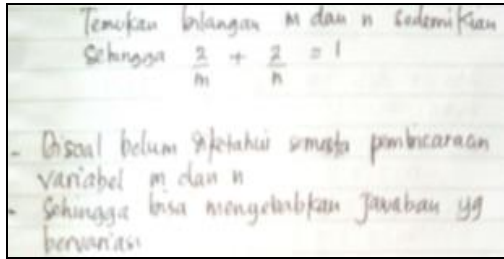 Temukan bilangan m dan n sedemikian
Sehingga 2/m + 2/n = 1
- Disoal belum diketahui semesta pembicaraan
variabel m dan n
- Sehingga bisa mengebabkan Jawaban yg
bervariasi